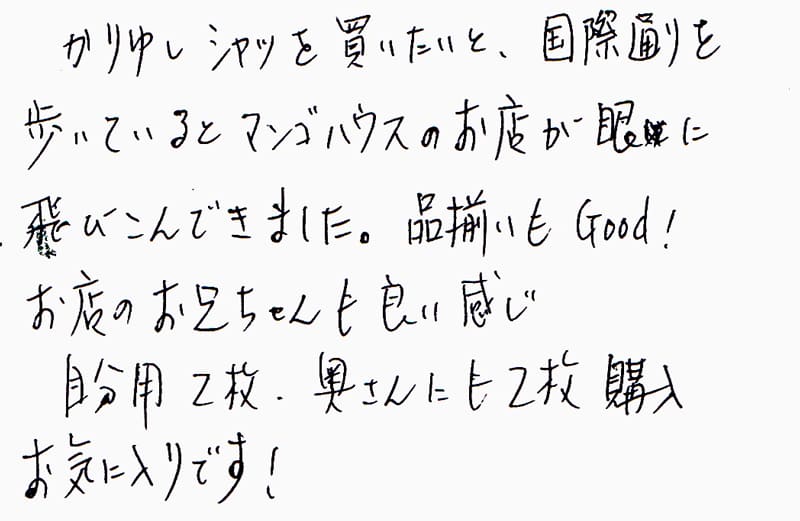 かりゆしシャツを買いたいと、国際通りを
歩いているとマンゴハウスのお店が眼に
飛びこんできました。品揃いもGood!
お店のお兄ちゃんも良い感じ
自分用2枚.奥さんにも2枚購入
お気に入りです!